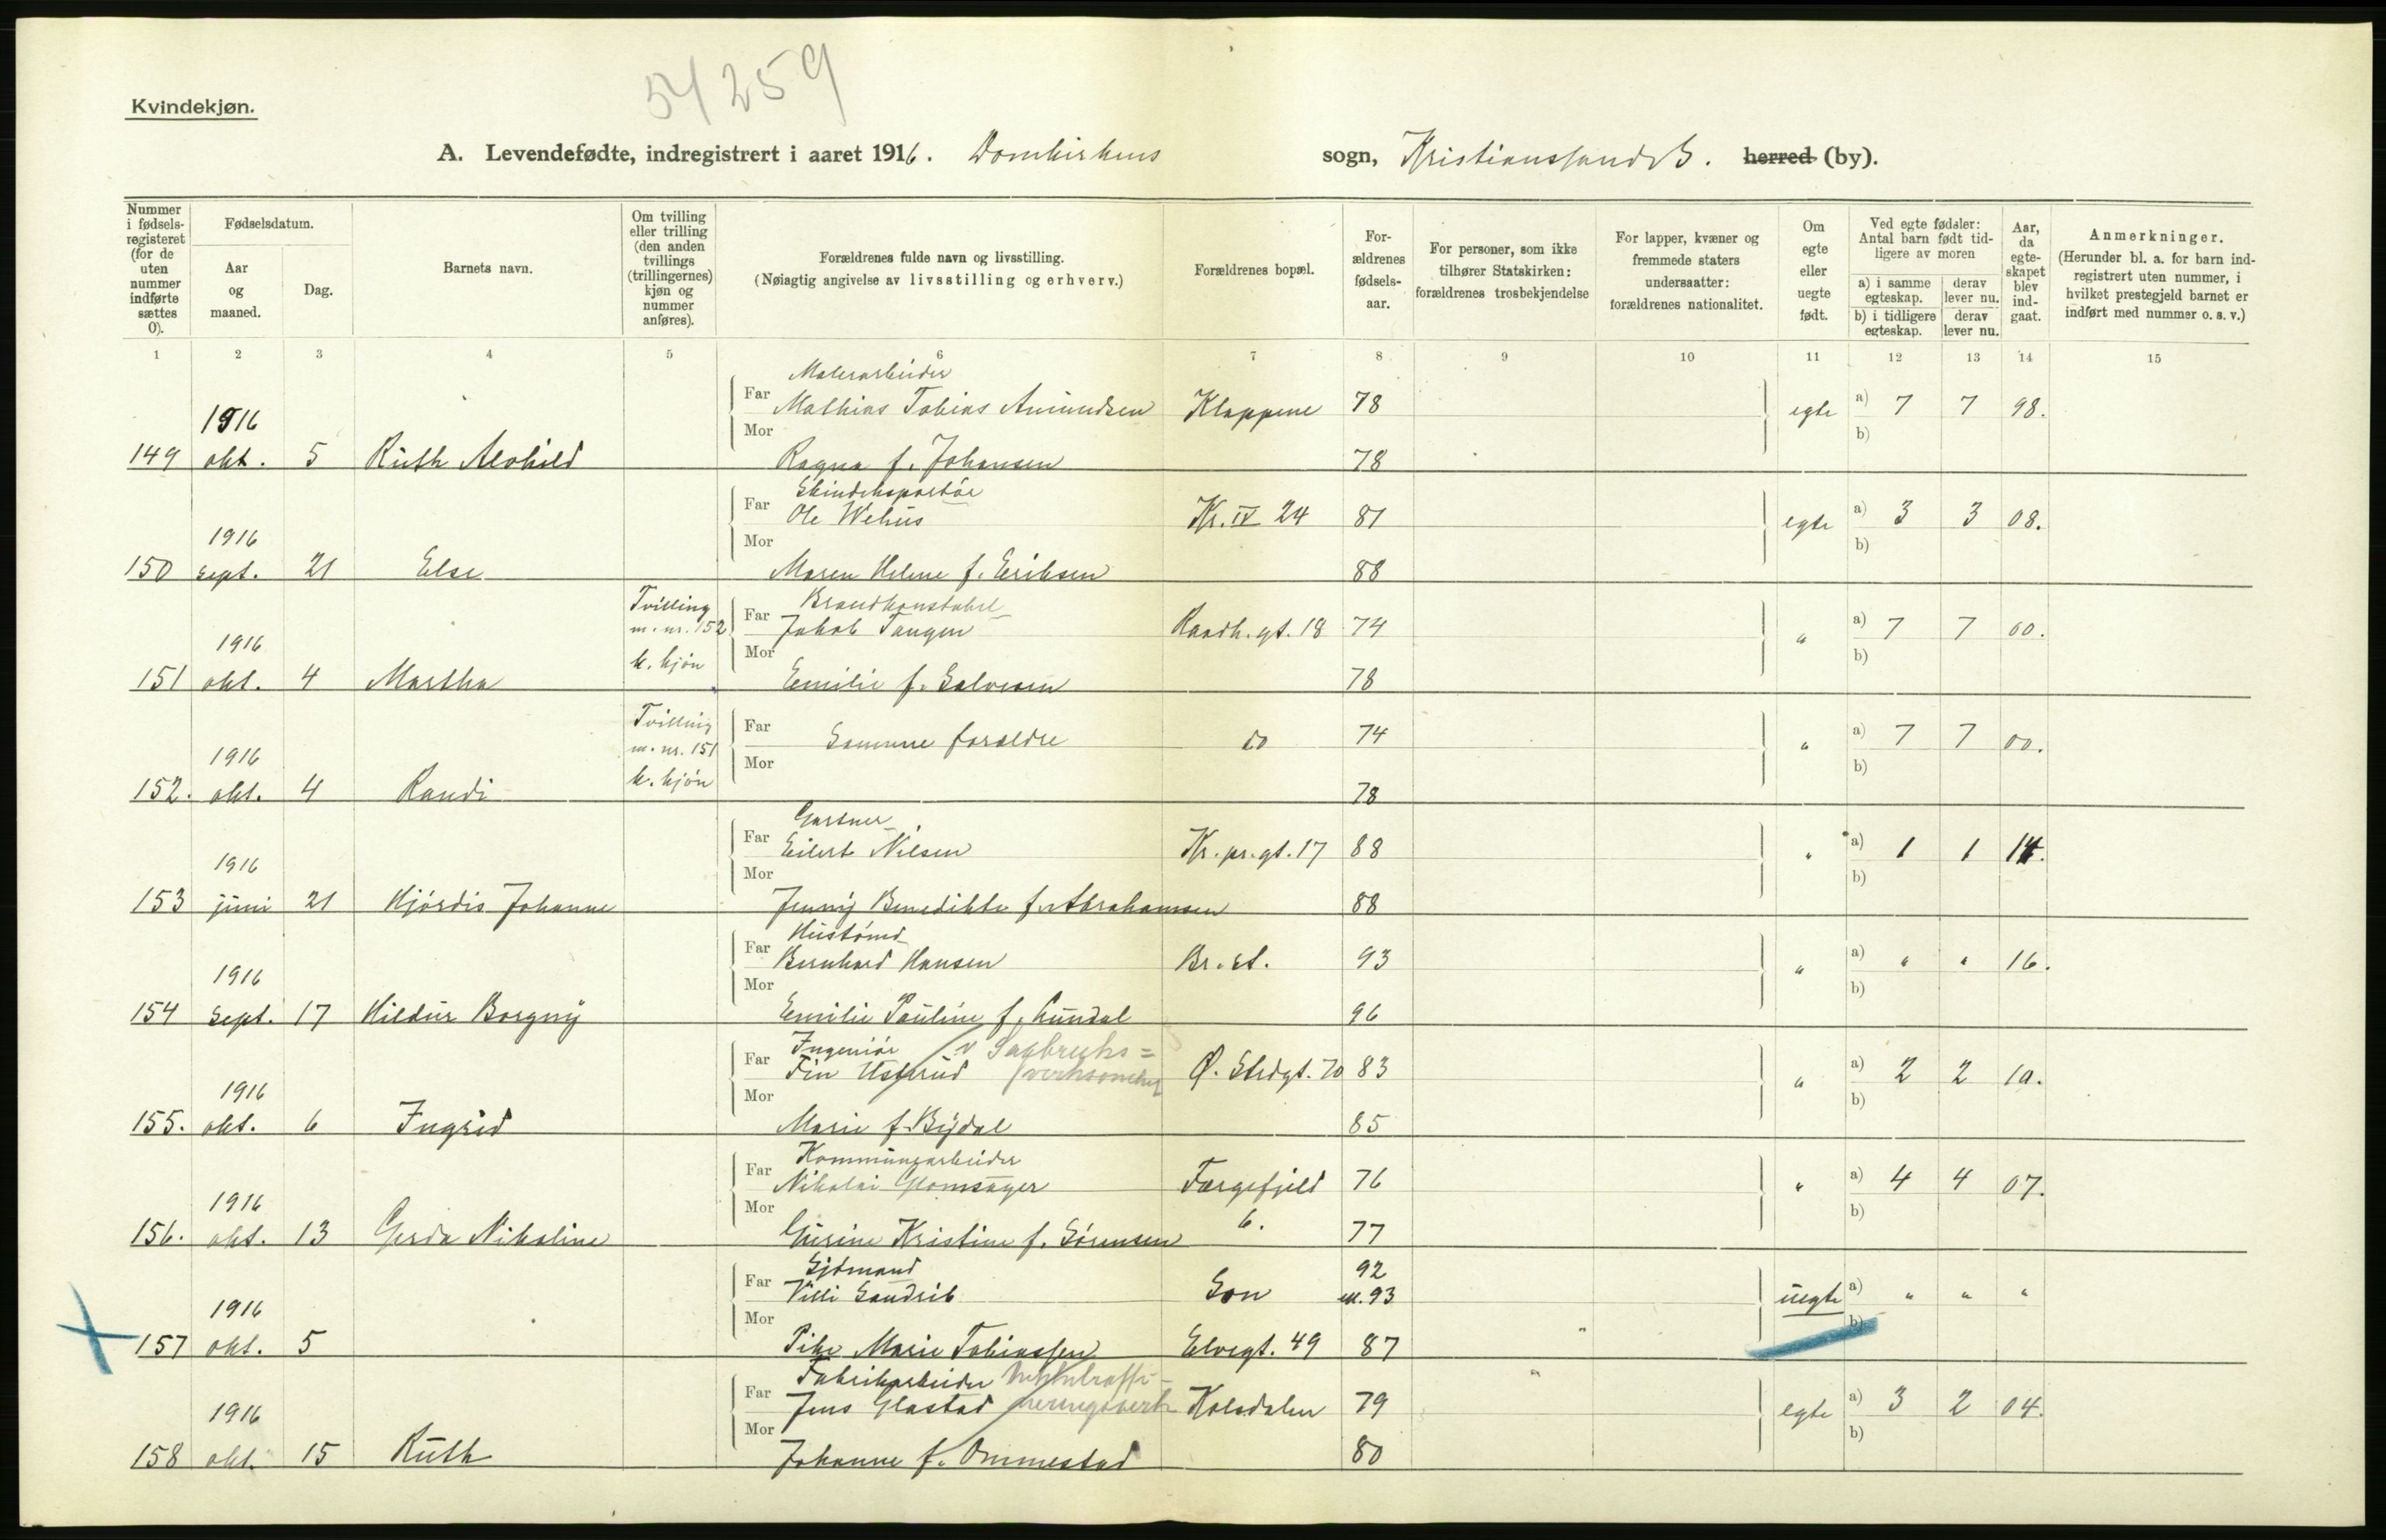 54259
Kvindekjøn.
A. Levendefødte, indregistrert i aaret 1916. Domkirkens sogn, Kristianssands B. herred (by).
Nummer i fødselsregisteret (for de uten nummer indførte sættes 0).
Fødselsdatum.
Aar og maaned.
Dag.
Barnets navn.
Om tvilling eller trilling (den anden tvillings (trillingernes) kjøn og nummer anføres).
Forældrenes fulde navn og livsstilling.
(Nøiagtig angivelse av livsstilling og erhverv.)
Forældrenes bopæl.
For-ældrenes fødsels-aar.
For personer, som ikke tilhører Statskirken: forældrenes trosbekjendelse
For lapper, kvæner og fremmede staters undersaatter: forældrenes nationalitet.
Om egte eller uegte født.
Ved egte fødsler: Antal barn født tid-ligere av moren
a) i samme egteskap.
derav lever nu.
b) i tidligere egteskap.
derav lever nu.
Aar, da egte-skapet blev ind-gaat.
Anmerkninger.
(Herunder bl. a. for barn ind-registrert uten nummer, i hvilket prestegjeld barnet er indført med nummer o. s. v.)
1 2 3 4 5 6 7 8 9 10 11 12 13 14 15
Malerarbeider
Far Mathias Tobias Amundsen Klappene 78 egte a) 7 7 98.
1916
Mor b)
149 okt. 5 Ruth Alvhild Ragna f. Johansen 78
Skindeksportør
Far Ole Wehus Kr. IV 24 81 egte a) 3 3 08.
1916
Mor b)
150 sept. 21 Else Maren Helene f. Eriksen 88
Tvilling m. nr. 152 k. kjøn
Brandkonstabel
Far Jakob Tangen Raadh. gt. 18 74 " a) 7 7 00.
1916
Mor b)
151 okt. 4 Martha Emilie f. Salvesen 78
Tvilling m. nr. 151 k. kjøn
Far Samme forældre do 74 " a) 7 7 00.
1916
Mor b)
152. okt. 4 Randi 78
Gartner
Far Eilert Nilsen Kr. pr. gt. 17 88 " a) 1 1 14.
1916
Mor b)
153 juni 21 Hjørdis Johanne Jenny Benedikte f. Abrahamsen 88
Hustømd
Far Bernhard Hansen Br. st. 93 " a) " " 16.
1916
Mor b)
154 sept. 17 Hildur Borgny Emilie Pauline f. Lundal 96
Ingeniør v Sagbruks=
Far Fin Ustrud verksomhet Ø. Strdgt. 70 83 " a) 2 2 10.
1916
Mor b)
155. okt. 6 Ingrid Marie f. Bydal 85
Kommunearbeider
Far Nikolai Glomsager Fargefjeld 76 " a) 4 4 07.
1916
Mor 6. b)
156. okt. 13 Gerda Nikoline Gurine Kristine f. Sørensen 77
Sjømand 92
Far Villi Sandvik Son el. 93 uegte a) " " "
1916
Mor b)
157 okt. 5 Pike Marie Tobiassen Elvegt. 49 87
Fabrikarbeider Nikkelraffi-
Far Jens Glastad neringsverk Kolsdalen 79 egte a) 3 2 04.
1916
Mor b)
158 okt. 15 Ruth Johanne f. Ommestad 80